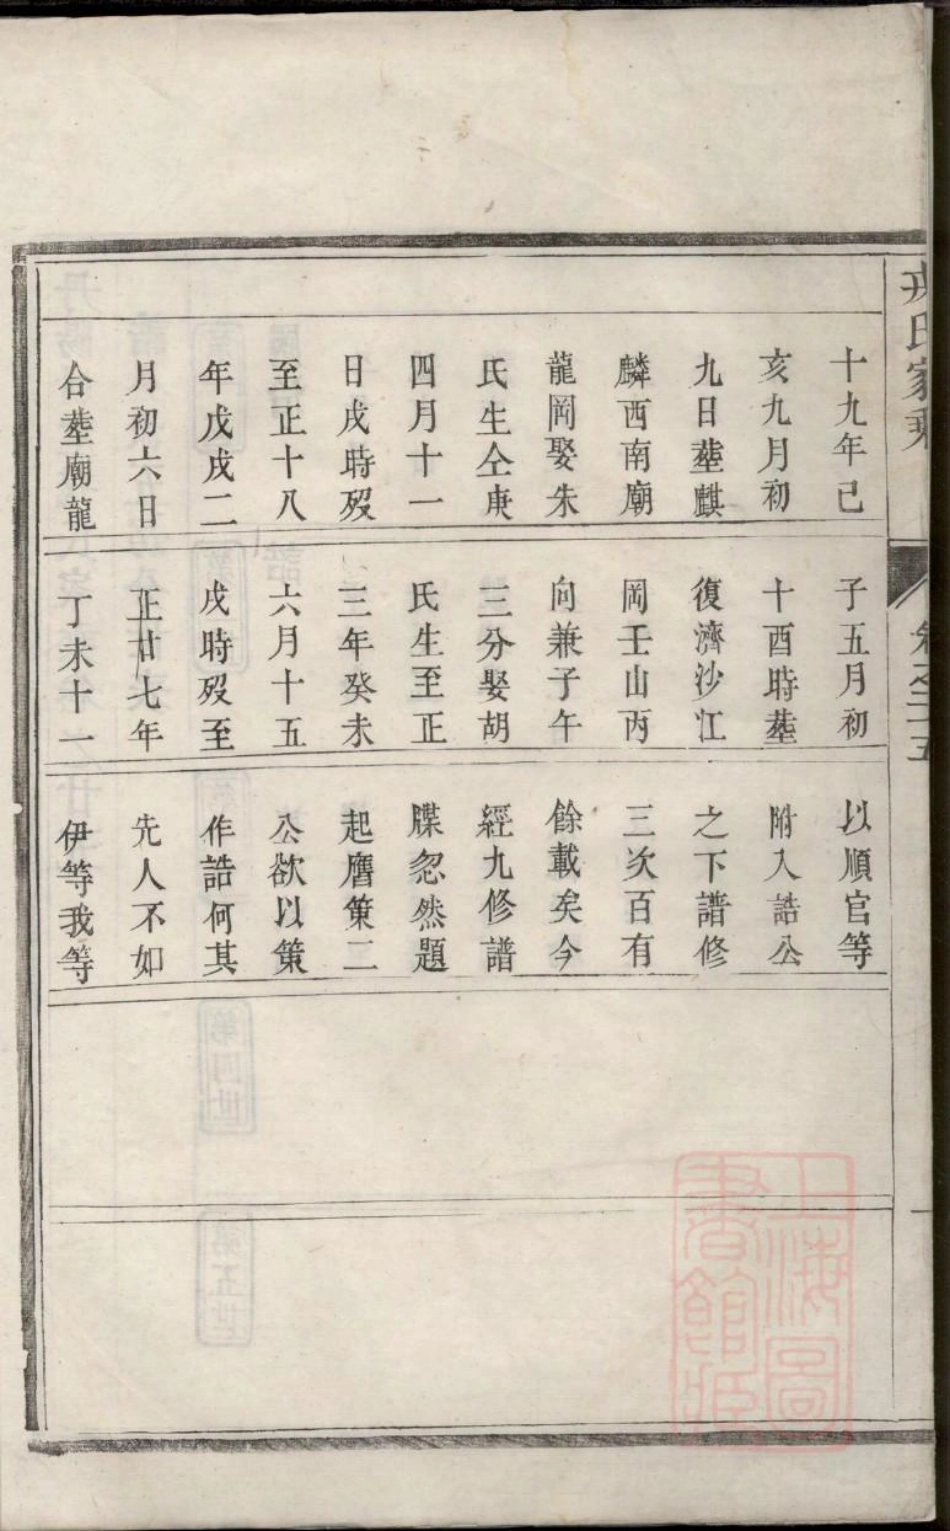 戎氏家乘
卷之二五
十九年己
亥九月初
九日塟麒
麟西南廟
龍岡娶朱
氏生仝庚
四月十一
日戌時歿
至正十八
年戊戌二
月初六日
合塟廟龍
子五月初
十酉時塟
復濟沙江
岡壬山丙
向兼子午
三分娶胡
氏生至正
三年癸未
六月十五
戌時歿至
正廿七年
丁未十一
以順官等
附入誥公
之下譜修
三次百有
餘載矣今
經九修譜
牒忽然題
起膺策二
公欲以策
作誥何其
先人不如
伊等我等
上海圖
書館藏